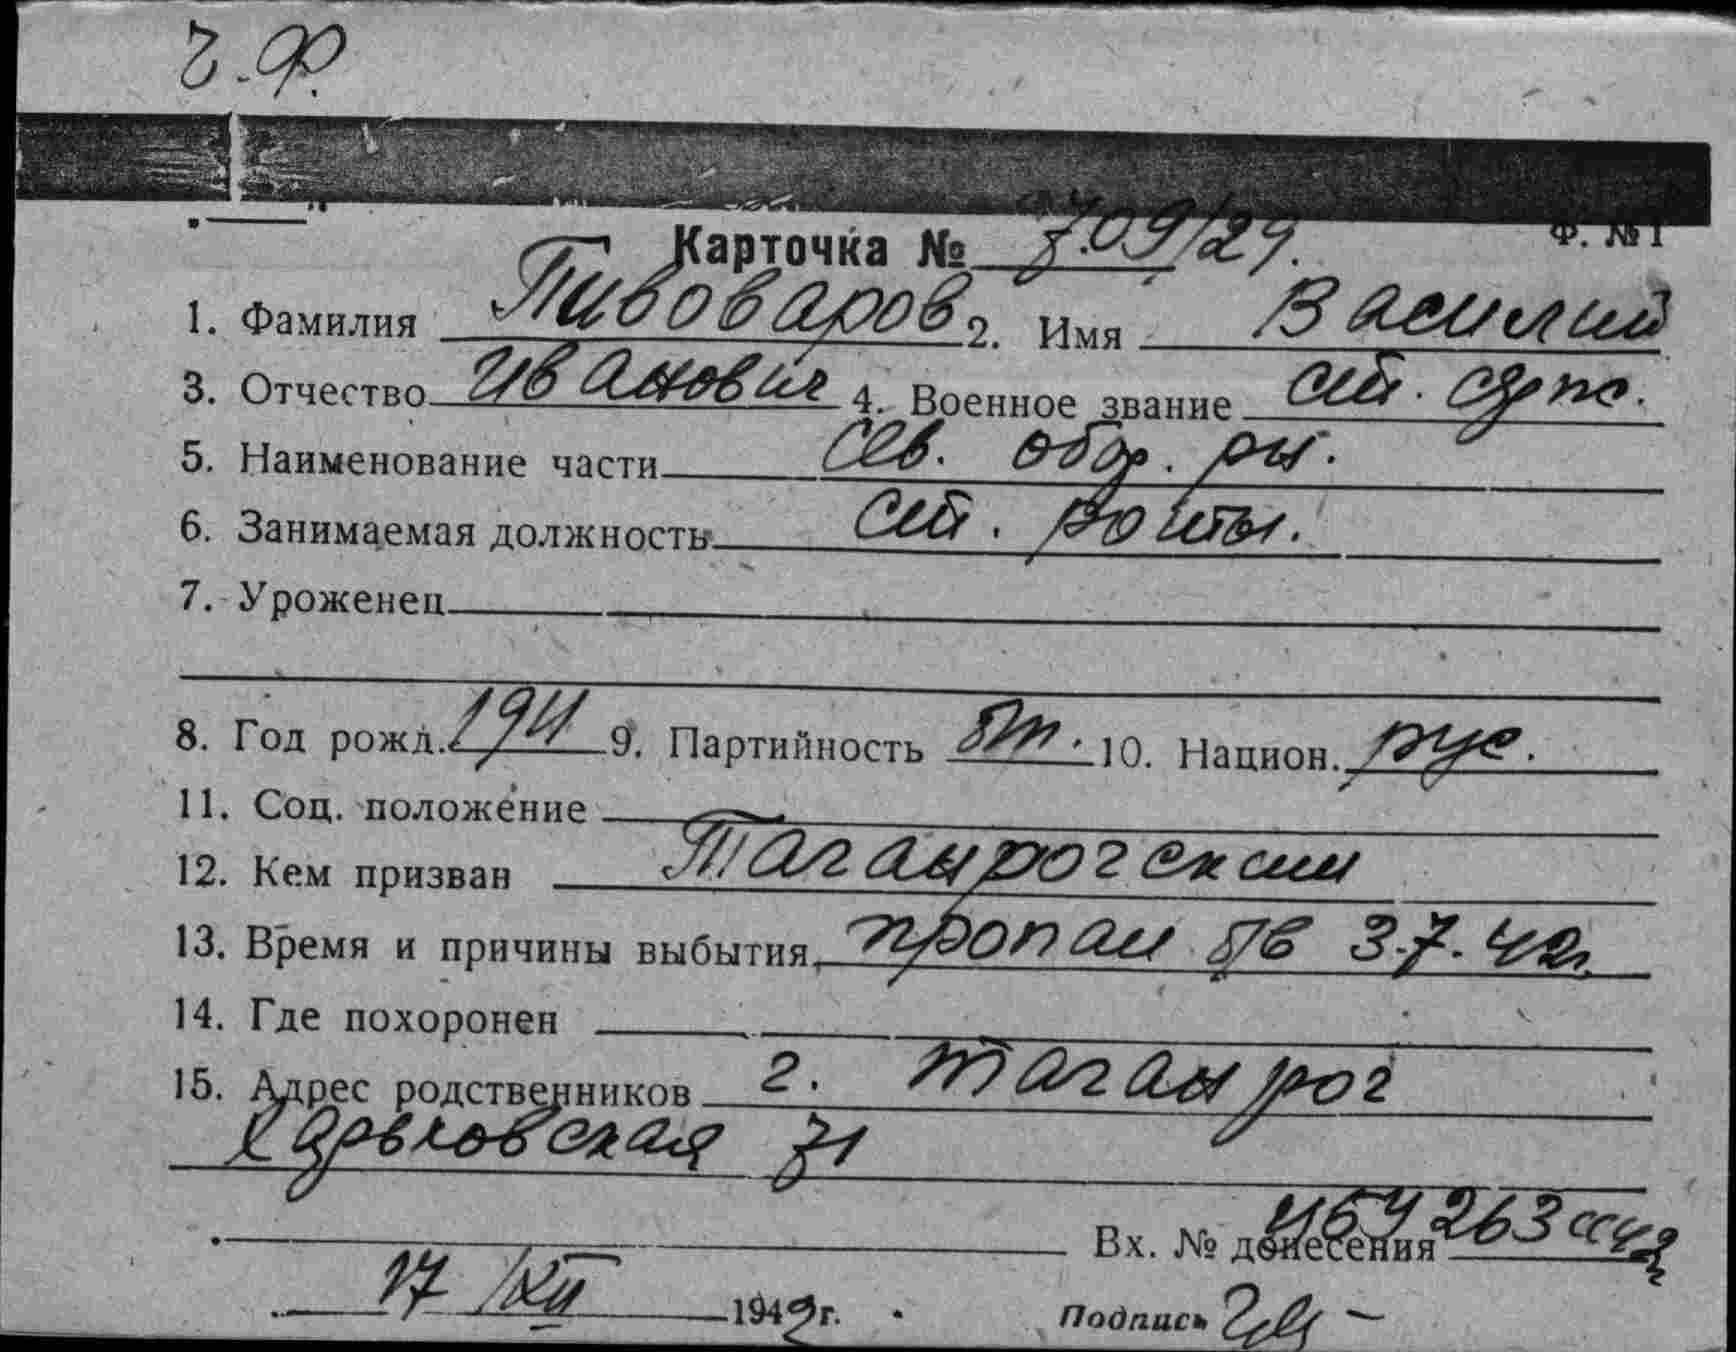 г.Ф.
Ф. № 1
Карточка № 709/24.
1. Фамилия Пивоваров 2. Имя Василий
3. Отчество Иванович 4. Военное звание
5. Наименование части Сев.
6. Занимаемая должность роты.
7. Уроженец
8. Год рожд. 9. Партийность 10. Национ. рус.
11. Соц. положение
12. Кем призван Таганрогским
13. Время и причины выбытия пропал 3.7.42г.
14. Где похоронен
15. Адрес родственников г. Таганрог
Харьковская 71
Вх. № донесения
17/XII 1942г. Подпись